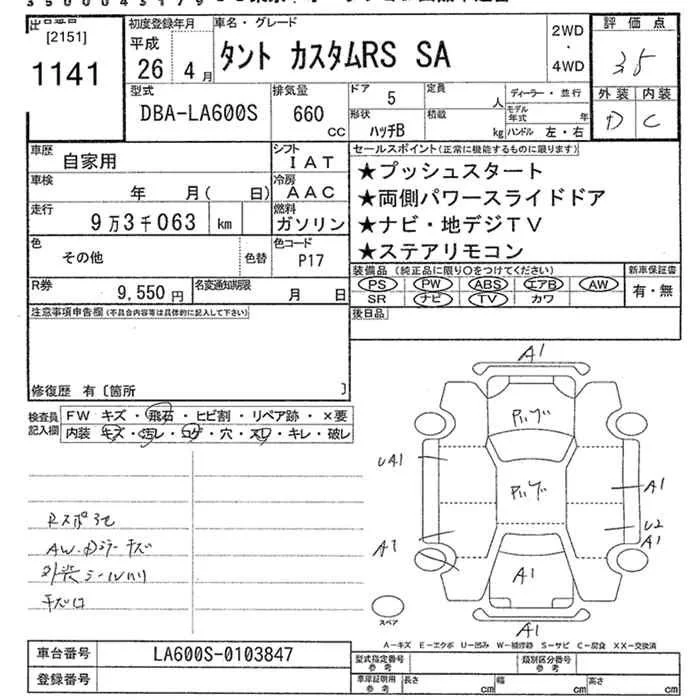 [2151]
1141
初度登録年月
平成
26年 4月
車名・グレード
タント カスタムRS SA
2WD
・
4WD
評価点
35
外装 内装
D C
型式
DBA-LA600S
排気量
660
CC
ドア
5
形状
ハッチB
定員
人
積載
kg
ディーラー・並行
モデル年式 年
ハンドル 左・右
車歴
自家用
シフト
IAT
車検
年 月( 日)
冷房
AAC
走行
9万3千063 km
燃料
ガソリン
色
その他
色替
色コード
P17
R券
9,550円
名変通知期限
月 日
セールスポイント(正常に機能するものに限ります)
★プッシュスタート
★両側パワースライドドア
★ナビ・地デジTV
★ステアリモコン
装備品(純正品に限り○をつけてください)
PS PW ABS エアB AW
SR ナビ TV カワ
新車保証書
有・無
後日品
注意事項申告欄(不具合内容等は具体的に記入して下さい)
修復歴 有〔箇所 〕
検査員記入欄
FW キズ・飛石・ヒビ割・リペア跡・×要
内装 キズ・汚レ・コゲ・穴・スレ・キレ・破レ
AW.
A1
UA1
A1
U2
A1
A1
A1
A1
スペア
A-キズ E-エクボ U-凹み W-補修跡 S-サビ C-腐食 XX-交換済
車台番号
LA600S-0103847
登録番号
型式指定番号
参考
類別区分番号
参考
車庫証明用
参考
長さ cm
幅 cm
高さ cm